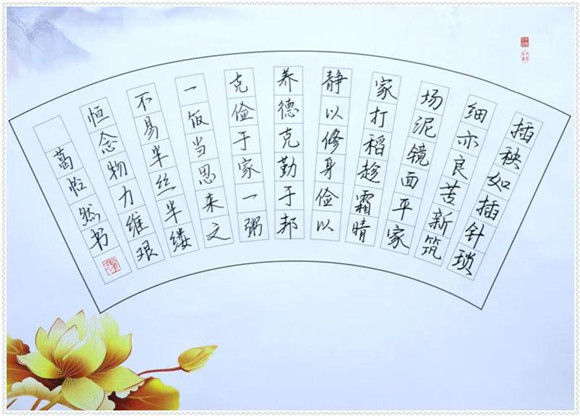 插秧如插针琐
细亦良苦新筑
场泥镜面平家
家打稻趁霜晴
静以修身俭以
养德克勤于邦
克俭于家一粥
一饭当思来之
不易半丝半缕
恒念物力维艰
葛怡然书